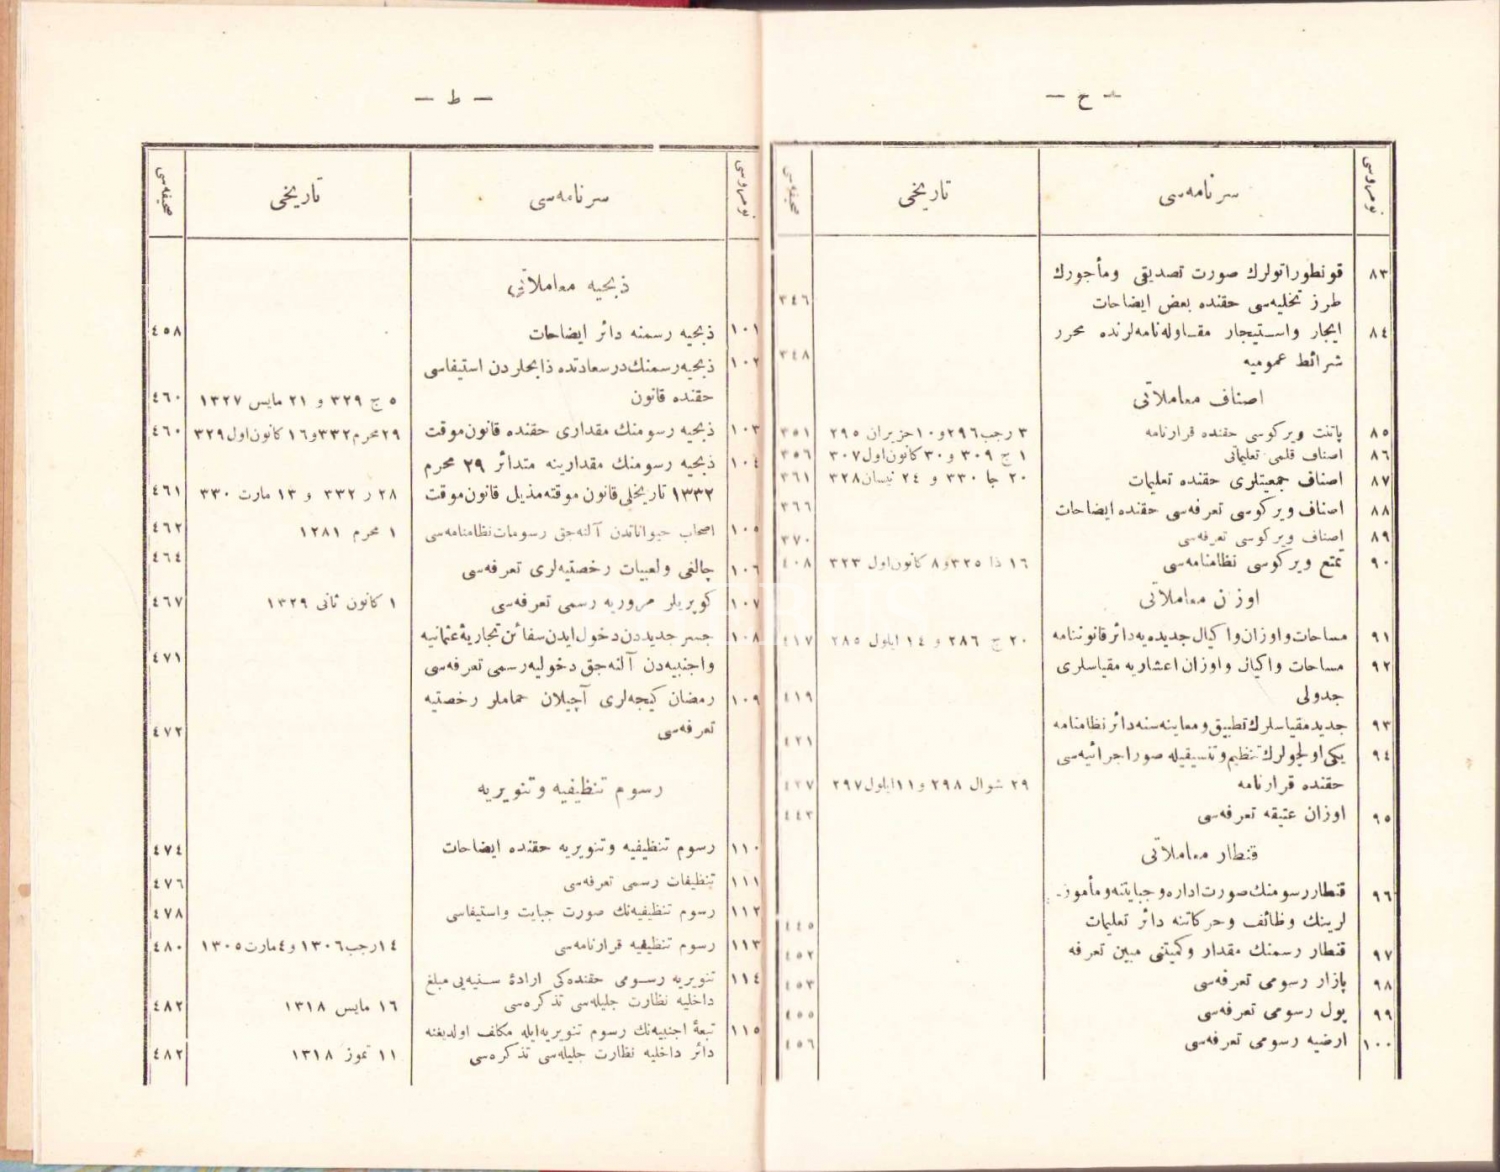 — ح —
نومروسی سرنامه‌سی تاریخی صحیفه‌سی
٨٣ قونطوراتولرك صورت تصدیقی ومأجورك
طرز تخلیه‌سی حقنده بعض ایضاحات ٣٤٦
٨٤ ایجار واستیجار مقاوله‌نامه‌لرنده محرر
شرائط عمومیه ٣٤٨
اصناف معاملاتی
٨٥ پاتنت ویركوسی حقنده قرارنامه ٣ رجب ٢٩٦ و ١٠ حزیران ٢٩٥ ٣٥١
٨٦ اصناف قلمی تعلیماتی ١ ج ٣٠٩ و ٣٠ كانون‌اول ٣٠٧ ٣٥٦
٨٧ اصناف جمعیتلری حقنده تعلیمات ٢٠ جا ٣٣٠ و ٢٤ نیسان ٣٢٨ ٣٦١
٨٨ اصناف ویركوسی تعرفه‌سی حقنده ایضاحات ٣٦٦
٨٩ اصناف ویركوسی تعرفه‌سی ٣٧٠
٩٠ تمتع ویركوسی نظامنامه‌سی ١٦ ذا ٣٢٥ و ٨ كانون‌اول ٣٢٣ ٤٠٨
اوزان معاملاتی
٩١ مساحات واوزان واكیال جدیده‌یه دائر قانوننامه ٢٠ ج ٢٨٦ و ١٤ ایلول ٢٨٥ ٤١٧
٩٢ مساحات واكیال واوزان اعشاریه مقیاسلری
جدولی ٤١٩
٩٣ جدید مقیاسلرك تطبیق ومعاینه‌سنه دائر نظامنامه ٤٢١
٩٤ یكی اولچولرك تنظیم وتنسیقیله صور اجرائیه‌سی
حقنده قرارنامه ٢٩ شوال ٢٩٨ و ١١ ایلول ٢٩٧ ٤٢٧
٩٥ اوزان عتیقه تعرفه‌سی ٤٤٣
قنطار معاملاتی
٩٦ قنطار رسومنك صورت اداره وجبایتنه ومأمور-
لرینك وظائف وحركاتنه دائر تعلیمات ٤٤٥
٩٧ قنطار رسمنك مقدار وكمیتنی مبین تعرفه ٤٥٢
٩٨ پازار رسومی تعرفه‌سی ٤٥٣
٩٩ پول رسومی تعرفه‌سی ٤٥٥
١٠٠ ارضیه رسومی تعرفه‌سی ٤٥٦
— ط —
نومروسی سرنامه‌سی تاریخی صحیفه‌سی
ذبحیه معاملاتی
١٠١ ذبحیه رسمنه دائر ایضاحات ٤٥٨
١٠٢ ذبحیه رسمنك درسعادتده ذابحلردن استیفاسی
حقنده قانون ٥ ج ٣٢٩ و ٢١ مایس ١٣٢٧ ٤٦٠
١٠٣ ذبحیه رسومنك مقداری حقنده قانون موقت ٢٩ محرم ٣٣٢ و ١٦ كانون‌اول ٣٢٩ ٤٦٠
١٠٤ ذبحیه رسومنك مقدارینه متدائر ٢٩ محرم
١٣٣٢ تاریخلی قانون موقته مذیل قانون موقت ٢٨ ر ٣٣٢ و ١٣ مارت ٣٣٠ ٤٦١
١٠٥ اصحاب حیواناتدن آلنه‌جق رسومات نظامنامه‌سی ١ محرم ١٢٨١ ٤٦٢
١٠٦ چالغی ولعبیات رخصتیه‌لری تعرفه‌سی ٤٦٤
١٠٧ كوپریلر مروریه رسمی تعرفه‌سی ١ كانون ثانی ١٣٢٩ ٤٦٧
١٠٨ جسر جدیددن دخول ایدن سفائن تجاریهٔ عثمانیه
واجنبیه‌دن آلنه‌جق دخولیه رسمی تعرفه‌سی ٤٧١
١٠٩ رمضان كیجه‌لری آچیلان حماملر رخصتیه
تعرفه‌سی ٤٧٢
رسوم تنظیفیه وتنویریه
١١٠ رسوم تنظیفیه وتنویریه حقنده ایضاحات ٤٧٤
١١١ تنظیفات رسمی تعرفه‌سی ٤٧٦
١١٢ رسوم تنظیفیه‌نك صورت جبایت واستیفاسی ٤٧٨
١١٣ رسوم تنظیفیه قرارنامه‌سی ١٤ رجب ١٣٠٦ و ٤ مارت ١٣٠٥ ٤٨٠
١١٤ تنویریه رسومی حقنده‌كی ارادهٔ سنیه‌یی مبلغ
داخلیه نظارت جلیله‌سی تذكره‌سی ١٦ مایس ١٣١٨ ٤٨٢
١١٥ تبعهٔ اجنبیه‌نك رسوم تنویریه ایله مكلف اولدیغنه
دائر داخلیه نظارت جلیله‌سی تذكره‌سی ١١ تموز ١٣١٨ ٤٨٢